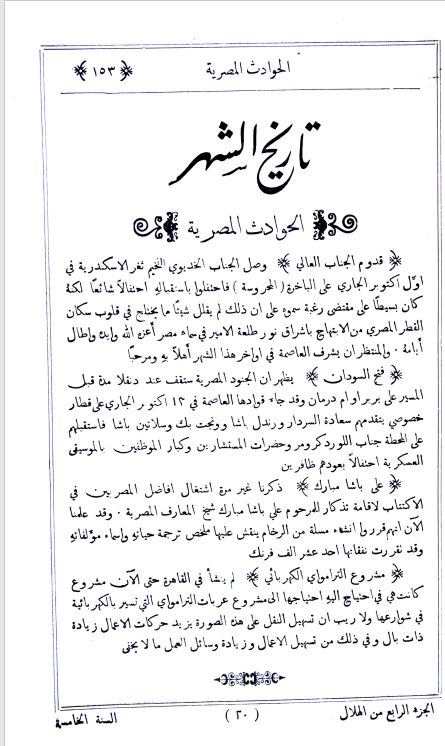 الحوادث المصرية
﴿ ١٥٣ ﴾
تاريخ الشهر
الحوادث المصرية
﴿ قدوم الجناب العالي ﴾ وصل الجناب الخديوي الفخيم ثغر الاسكندرية في
اوّل اكتوبر الجاري على الباخرة ( المحروسة ) فاحتفلوا باستقباله احتفالاً شائقًا لكنهُ
كان بسيطًا على مقتضى رغبة سموهِ على ان ذلك لم يقلل شيئًا مما يختلج في قلوب سكان
القطر المصري من الابتهاج باشراق نور طلعة الامير في سماء مصر أعزه الله وايده واطال
أيامهُ . والمنتظر ان يشرف العاصمة في اواخر هذا الشهر أهلاً به ومرحبًا
﴿ فتح السودان ﴾ يظهر ان الجنود المصرية ستقف عند دنقلا مدة قبل
المسير على بربر او ام درمان وقد جاء قوادها العاصمة في ١٢ اكتوبر الجاري على قطار
خصوصي يتقدمهم سعادة السردار ورندل باشا وونجت بك وسلاتين باشا فاستقبلهم
على المحطة جناب اللورد كرومر وحضرات المستشارين وكبار الموظفين بالموسيقى
العسكرية احتفالاً بعودهم ظافرين
﴿ علي باشا مبارك ﴾ ذكرنا غير مرة اشتغال افاضل المصريين في
الاكتتاب لاقامة تذكار للمرحوم علي باشا مبارك شيخ المعارف المصرية . وقد علمنا
الآن انهم قرروا انشاء مسلة من الرخام ينقش عليها ملخص ترجمة حياتهِ واسماء مؤلفاتهِ
وقد تقررت نفقاتها احد عشر الف فرنك
﴿ مشروع التراموَاي الكهربائي ﴾ لم ينشأ في القاهرة حتى الآن مشروع
كانت هي في احتياج اليهِ احتياجها الى مشروع عربات التراموَاي التي تسير بالكهربائية
في شوارعها ولا ريب ان تسهيل النقل على هذه الصورة يزيد حركات الاعمال زيادة
ذات بال وفي ذلك من تسهيل الاعمال وزيادة وسائل العمل ما لا يخفى
الجزء الرابع من الهلال ( ٢٠ ) السنة الخامسة